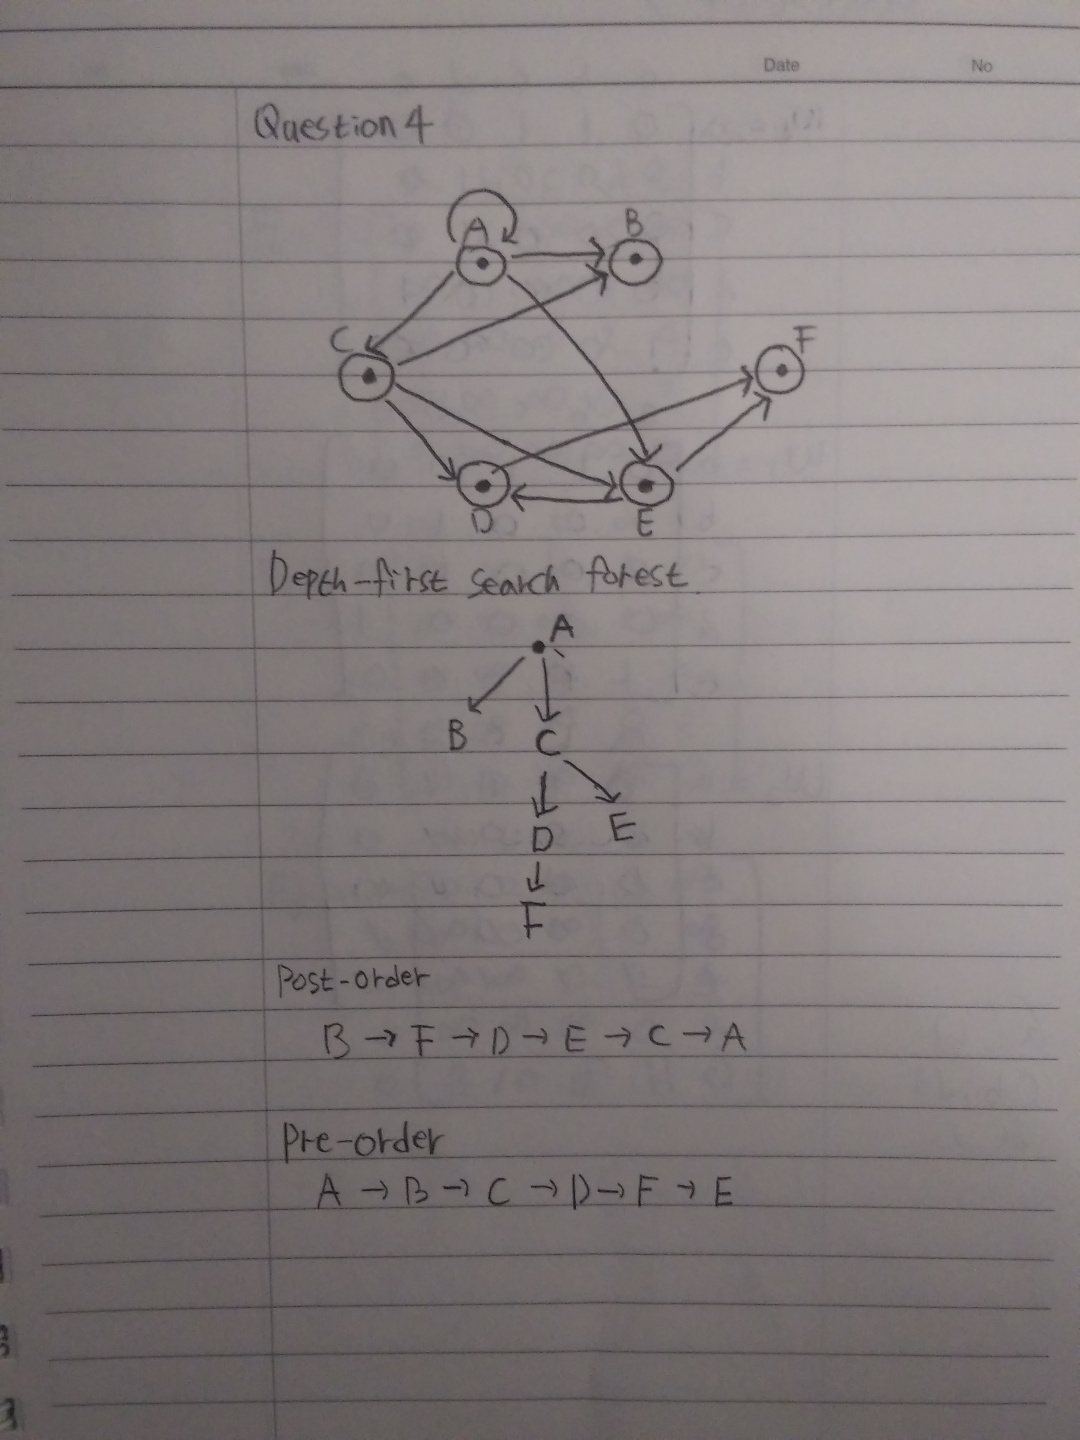 Date No
Question 4
A B
C F
D E
Depth-first search forest.
A
B C
D E
F
Post-order
B → F → D → E → C → A
Pre-order
A → B → C → D → F → E